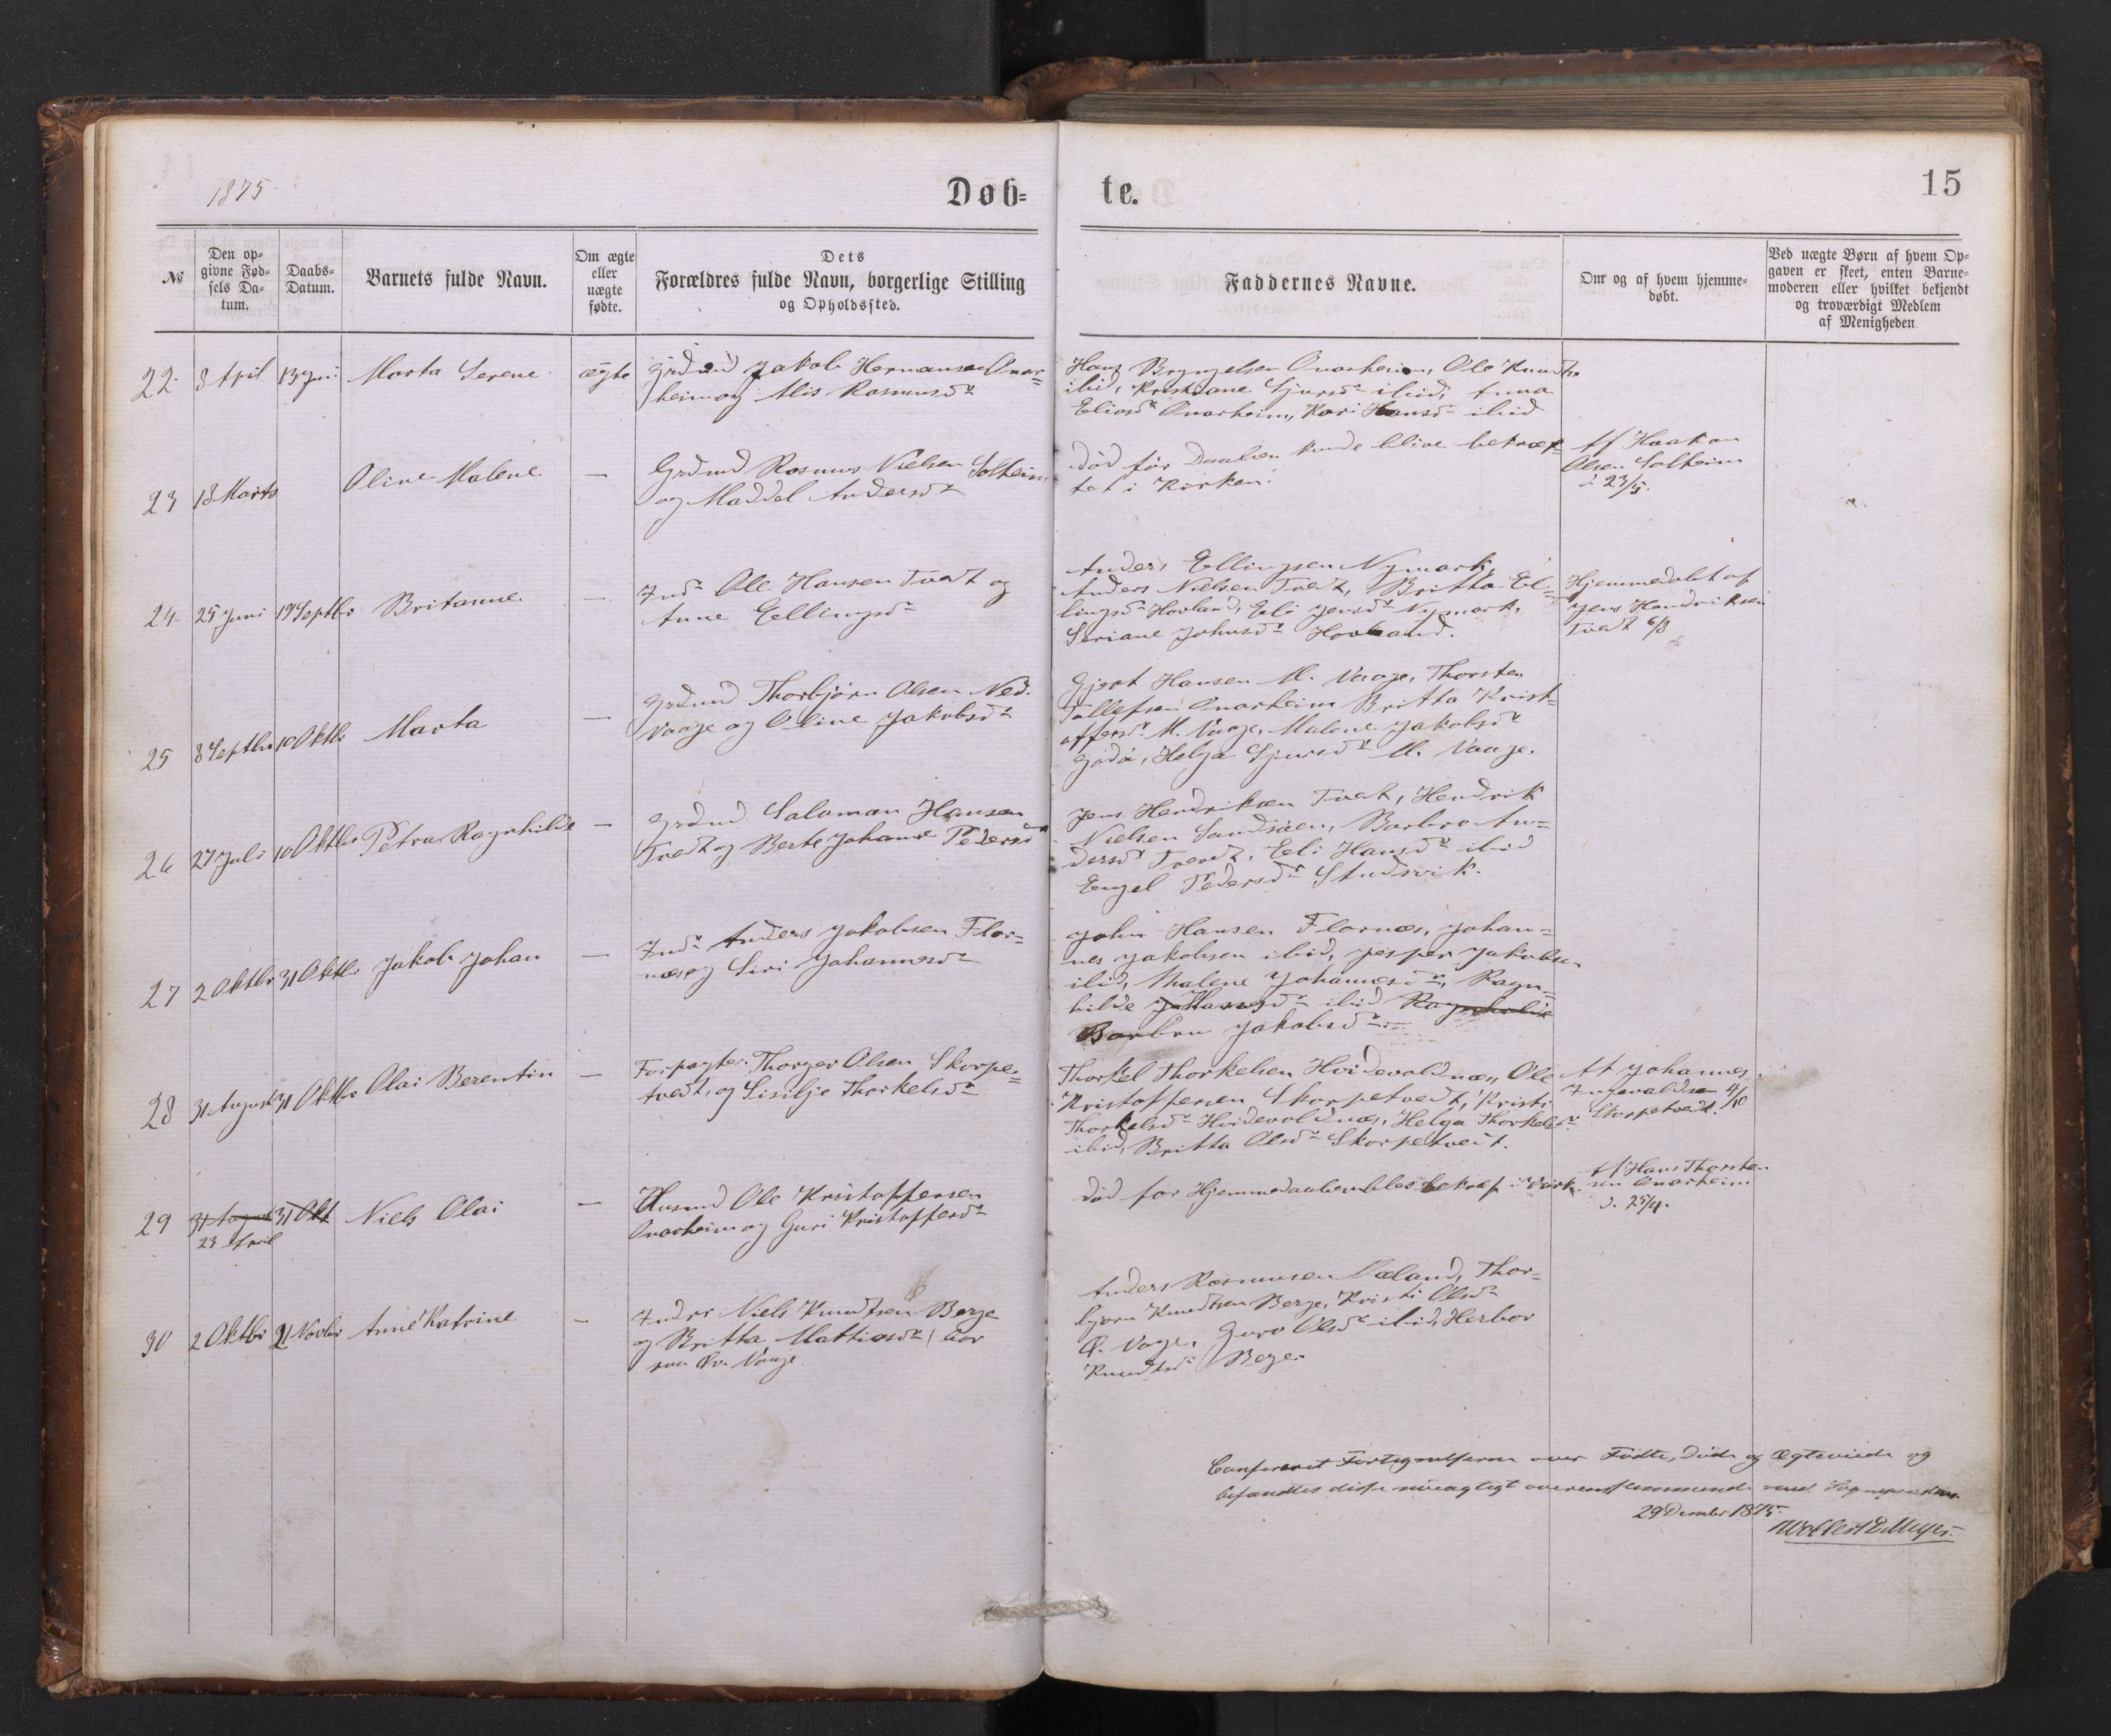 1875
Døb=
te.
15
No
Den op-
givne Fød-
sels Da-
tum.
Daabs-
Datum.
Barnets fulde Navn.
Om ægte
eller
uægte
fødte.
Dets
Forældres fulde Navn, borgerlige Stilling
og Opholdssted.
Faddernes Navne.
Om og af hvem hjemme-
døbt.
Ved uægte Børn af hvem Op-
gaven er skeet, enten Barne-
moderen eller hvilket bekjendt
og troværdigt Medlem
af Menigheden
22 8 April 13 Juni Marta Serene ægte Grdmd Jakob Hermansen Onar=
heim og Alis Rasmusdr
Hans Brynjelsen Onarheim, Ole Knudts.
ibid, Kristiane Sjursdr ibid, Anna
Eliasdr Onarheim, Kari Hansdr ibid
23 18 Marts Oline Malene — Grdmd Rasmus Nielsen Solheim,
og Maddel Andersdr
död før Daaben kunde blive bekræf=
tet i Kirken.
Af Haakon
Olsen Solheim
d. 23/5.
24 25 Juni 19 Septbr Britanne — Indr Ole Hansen Tvedt og
Anne Ellingsdr
Anders Ellingsen Nymark,
Anders Nielsen Tvedt, Britta El=
lingsdr Hovland, Eli Jensdr Nymark,
Seriane Johnsdr Hovland.
Hjemmedøbt af
Jens Hendriksen
Tvedt 6/8
25 8 Septbr 10 Oktbr Marta — Grdmd Thorbjörn Olsen Ned.
Vaage og Oline Jakobsdr
Gjert Hansen M. Vaage, Thorsten
Tollefsen Onarheim Britta Krist=
offersdr M. Vaage, Malene Jakobsdr
Helga Sjursdr M. Vaage.
26 27 Juli 10 Oktbr Petra Ragnhilde — Grdmd Salomon Hansen
Tvedt og Berte Johanne Pedersdr
Jens Hendriksen Tvedt, Hendrik
Nielsen Barbro An=
dersdr Tvedt, Eli Hansdr ibid
Engel Pedersdr
27 2 Oktbr 31 Oktbr Jakob Johan — Indr Anders Jakobsen Flor=
næs og Siri Johannesdr
John Hansen Flornæs, Johan=
nes Jakobsen ibid, Jesper Jakobsen
ibid, Malene Johannesdr, Ragn=
hilde ibid Ragnhilde
Barbru Jakobsdr
28 31 August 31 Oktbr Olai Berentin — Forpagter Thorger Olsen Skorpe=
tvedt, og Sisilje Thorkelsdr
Thorkel Thorkelsen Hvidevoldnæs, Ole
Kristoffersen Skorpetvedt, Kristi
Thorkelsdr Hvidevoldnæs, Helga Thorkelsdr
ibid, Britta Olsdr Skorpetvedt.
Af Johannes
Ingvaldsen 4/10
Skorpetvedt.
29 31 August 31 Okt Niels Olai — Husmd Ole Kristoffersen
23 April
Onarheim og Guri Kristoffersdr
död før Hjemmedaaben blev bekræf. i Kirk.
Af Hans Thorsten
sen Onarheim
d. 25/4.
30 2 Oktbr 21 Novbr Anne Katrine — Inder Niels Knudtsen Berge
og Britta Mattiasdr
Øv. Vaage
Anders Rasmusen Væland, Thor=
bjørn Knudtsen Berge, Kristi Olsdr
Ø. Vage, Guro Olsdr ibid, Herbor
Knudtsdr Berge.
Confereret Fortegnelserne over Födte, Döde og Ægteviede og
befandtes disse nöiagtigt overensstemmende med
29 Decmber 1875